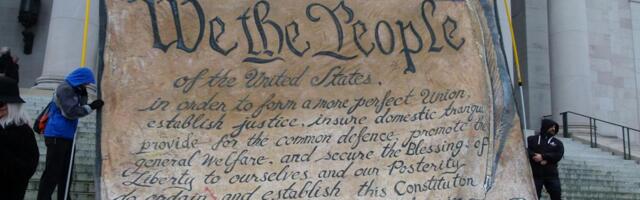 We the People
of the United States,
in order to form a more perfect Union,
establish justice, insure domestic tranqui
provide for the common defence, promote the
general Welfare, and secure the Blessings of
Liberty to ourselves and our Posterity
do ordain and establish this Constituton